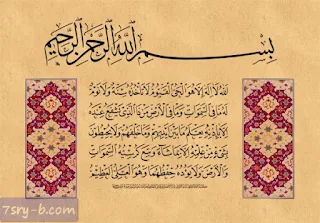 بِسْمِ اللَّهِ الرَّحْمَٰنِ الرَّحِيمِ
اللَّهُ لَا إِلَٰهَ إِلَّا هُوَ الْحَيُّ الْقَيُّومُ لَا تَأْخُذُهُ سِنَةٌ وَلَا نَوْمٌ
لَهُ مَا فِي السَّمَاوَاتِ وَمَا فِي الْأَرْضِ مَنْ ذَا الَّذِي يَشْفَعُ عِنْدَهُ
إِلَّا بِإِذْنِهِ يَعْلَمُ مَا بَيْنَ أَيْدِيهِمْ وَمَا خَلْفَهُمْ وَلَا يُحِيطُونَ
بِشَيْءٍ مِنْ عِلْمِهِ إِلَّا بِمَا شَاءَ وَسِعَ كُرْسِيُّهُ السَّمَاوَاتِ
وَالْأَرْضَ وَلَا يَئُودُهُ حِفْظُهُمَا وَهُوَ الْعَلِيُّ الْعَظِيمُ
7sry-b.com